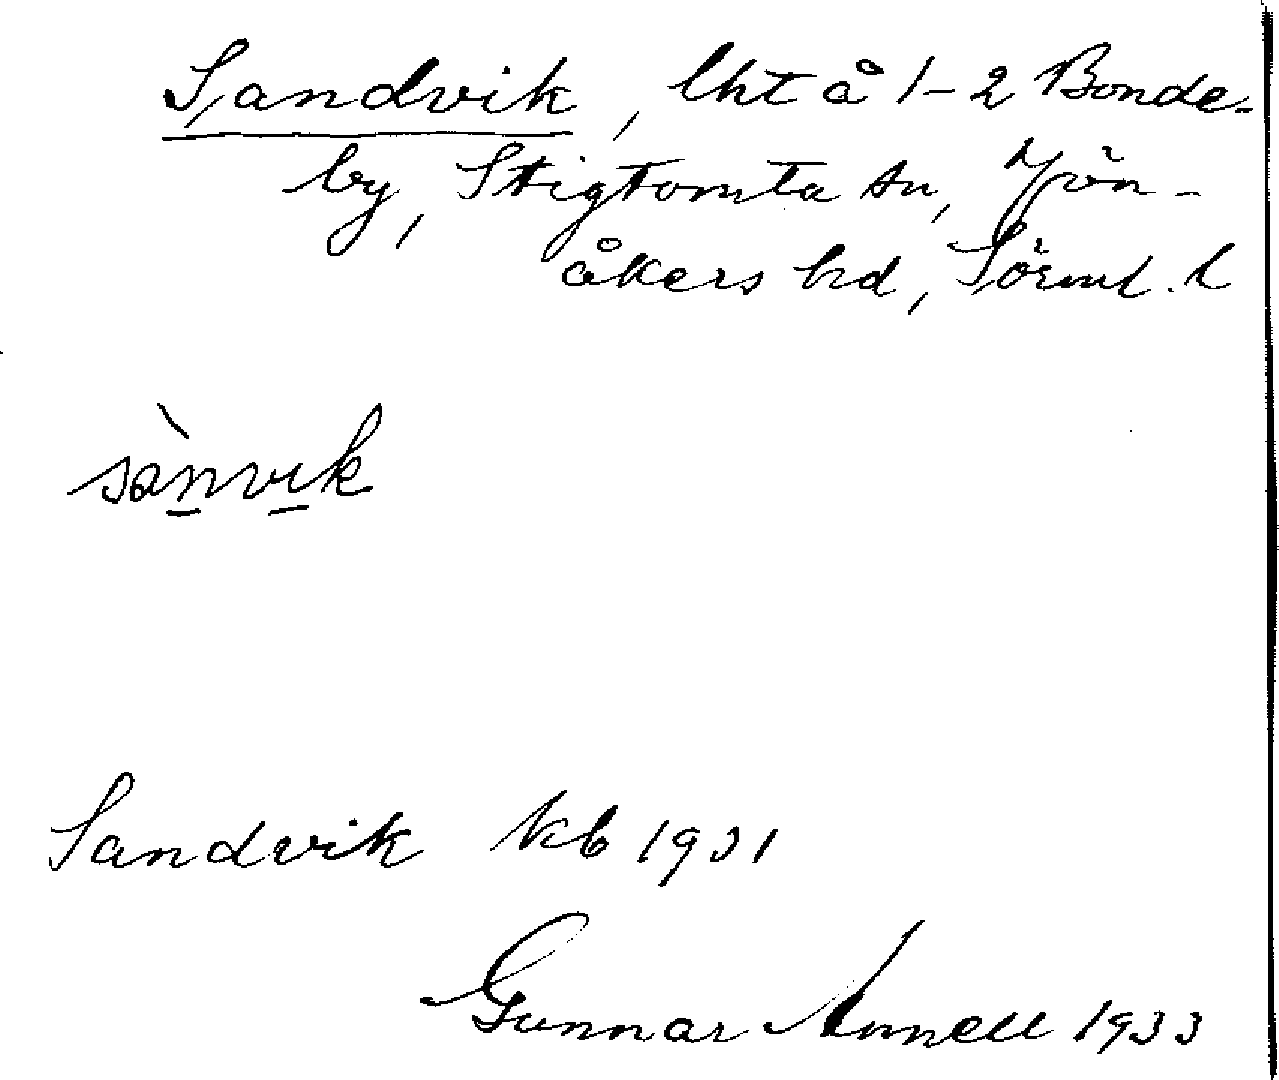 Sandvik, lht å 1-2 Bonde-
by, Stigtomta sn, Jön-
åkers hd, Sörml. l
sànvik
Sandvik kb 1931
Gunnar Annell 1933